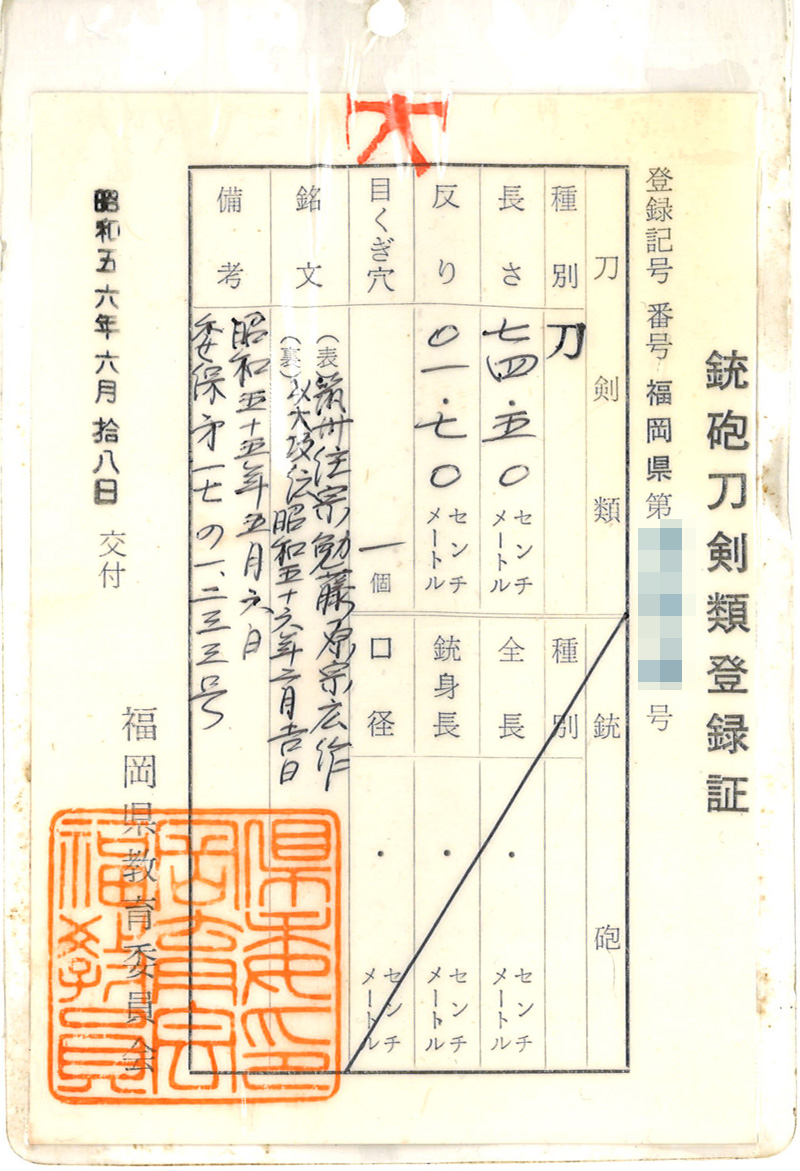 大
銃砲刀剣類登録証
登録記号 番号 福岡県第 号
刀剣類
種別 刀
長さ 七四.五〇 センチメートル
反り 〇一.七〇 センチメートル
目くぎ穴 一個
銘文 (表)筑州住宗勉藤原宗広作
(裏)以大改伝昭和五十六年二月吉日
備考 昭和五十五年五月六日
委保才一七の一、二三三号
銃砲
種別
全長 . センチメートル
銃身長 . センチメートル
口径 . センチメートル
昭和五六年六月拾八日 交付
福岡県教育委員会